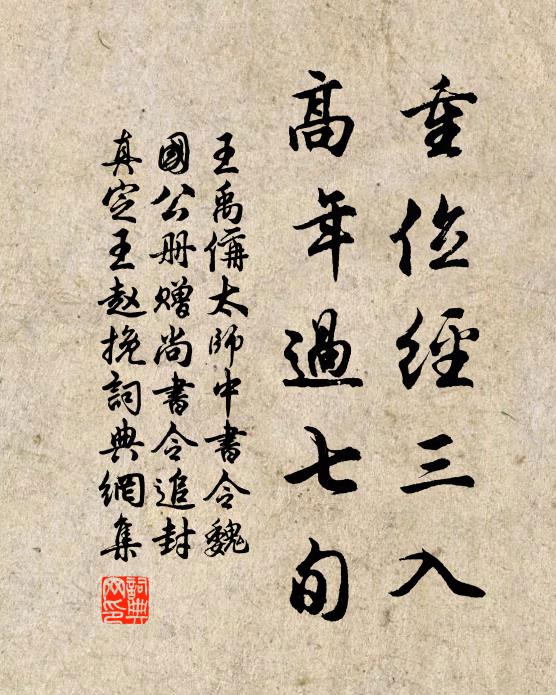 重位經三入
高年過七旬
王禹偁太師中書令魏
國公册贈尚書令追封
真定王趙挽詞典網集
詞典網印